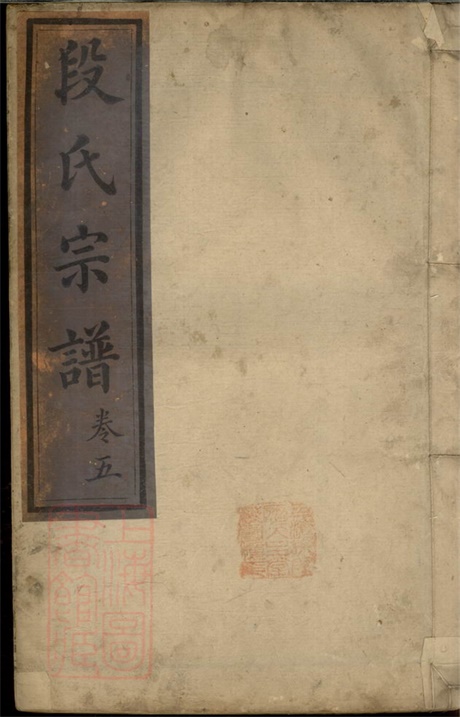 段氏宗譜
卷五